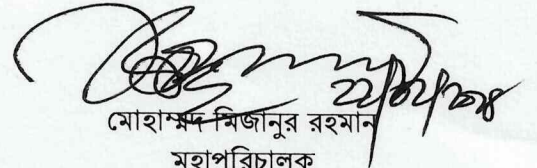 মোহাম্মদ মিজানুর রহমান
মহাপরিচালক